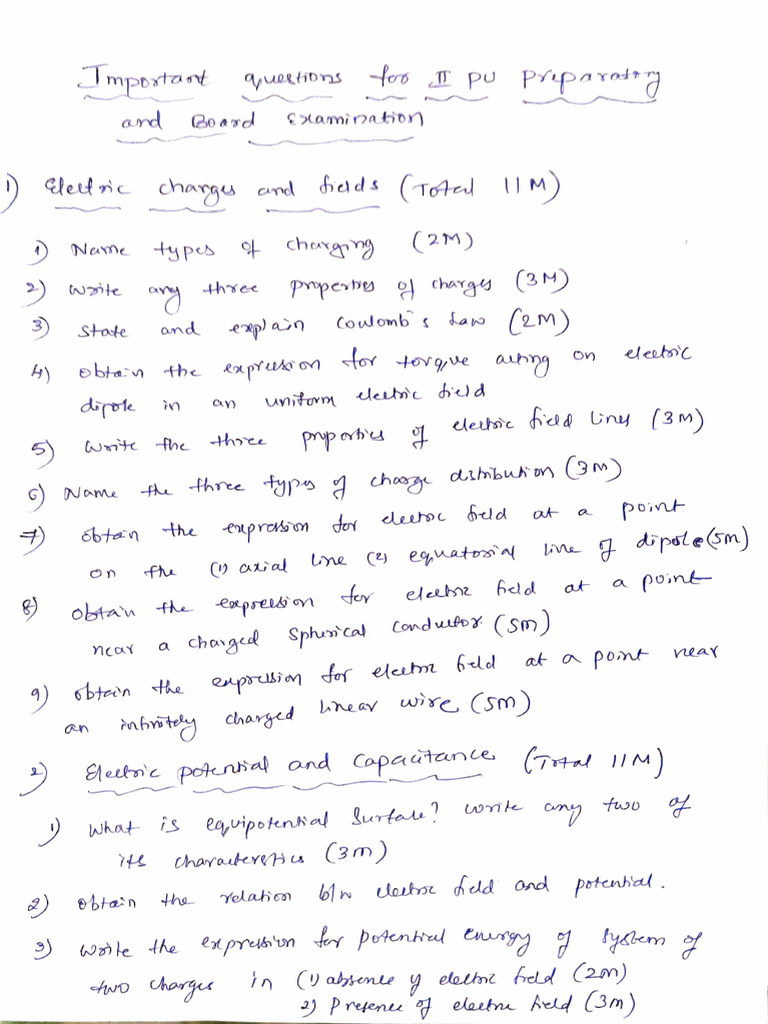 Important questions for II PU Preparatory
and Board Examination
1) Electric charges and fields (Total 11M)
1) Name types of charging (2M)
2) Write any three properties of charges (3M)
3) State and explain Coulomb's Law (2M)
4) Obtain the expression for torque acting on electric
dipole in an uniform electric field
5) Write the three properties of electric field lines (3M)
6) Name the three types of charge distribution (3M)
7) Obtain the expression for electric field at a point
on the (1) axial line (2) equatorial line of dipole (5m)
8) Obtain the expression for electric field at a point
near a charged spherical conductor (5m)
9) Obtain the expression for electric field at a point near
an infinitely charged linear wire (5m)
2) Electric potential and Capacitance (Total 11M)
1) What is equipotential Surface? Write any two of
its characteristics (3m)
2) Obtain the relation b/w electric field and potential.
3) Write the expression for potential energy of system of
two charges in (1) absence of electric field (2m)
2) Presence of electric field (3m)